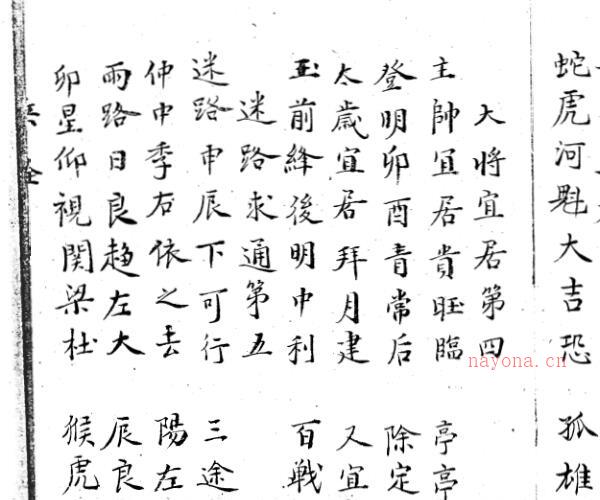 蛇虎河魁大吉恐 孤雄
大将宜居第四
主帥宜居貴旺臨 亭亭
登明卯酉青常后 除定
太歲宜居拜月建 又宜
玉前絳後明中利 百戦
迷路求通第五
迷路申辰下可行 三途
仲中季右依之去 陽左
兩路日良趋左大 辰良
卯星仰視関梁杜 猴虎
nayona.cn